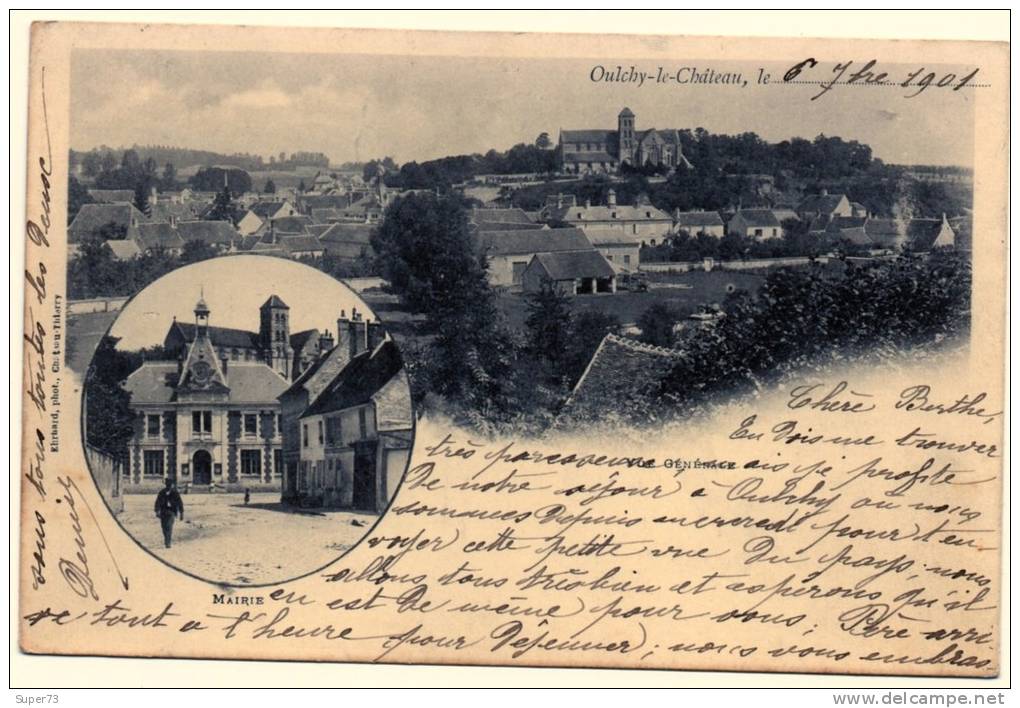 Oulchy-le-Château, le 6 7bre 1901
Ehrhard, phot., Château-Thierry
VUE GÉNÉRALE
MAIRIE
Chère Berthe,
En dois me trouver
très paresseuse mais je profite
de notre séjour à Oulchy où nous
sommes depuis mercredi pour t'en
voyer cette petite vue du pays; nous
allons tous très bien et espérons qu'il
en est de même pour vous; Père arri
ve tout à l'heure pour déjeuner; nous vous embras
sons tous toutes les
Super73
www.delcampe.net